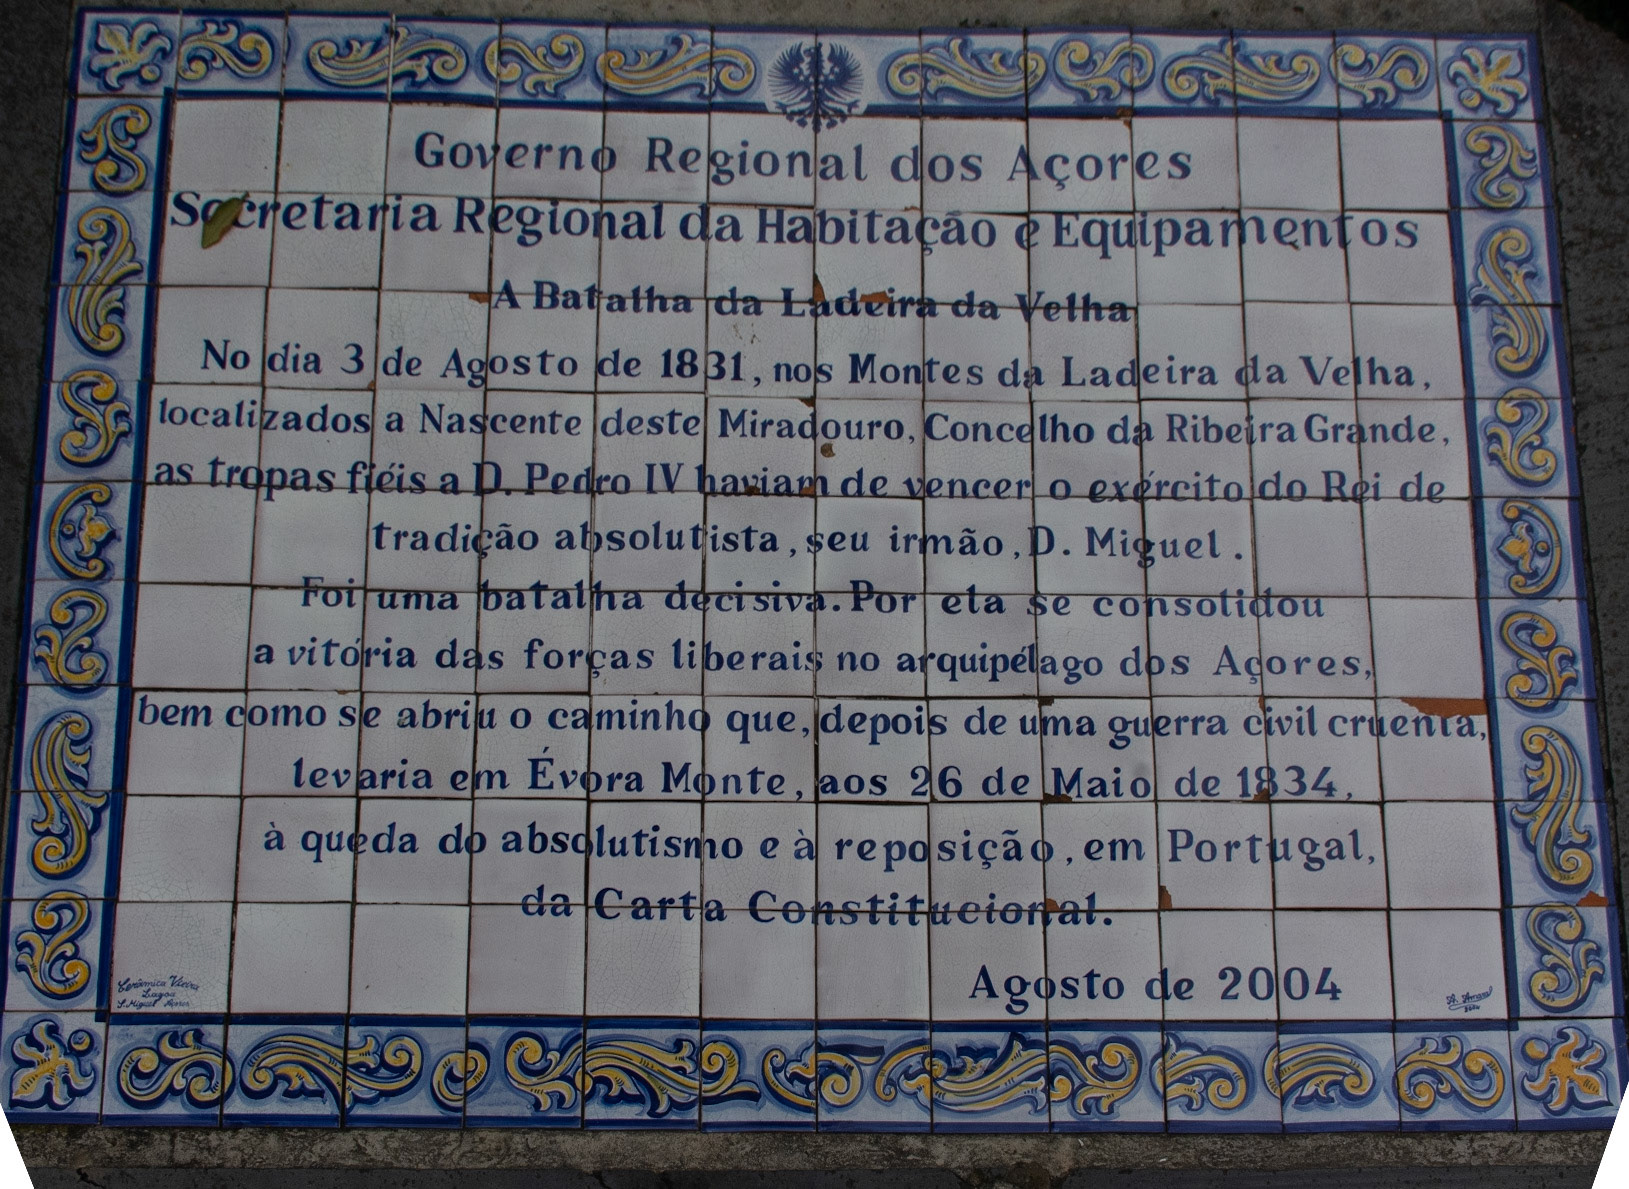 Governo Regional dos Açores
Secretaria Regional da Habitação e Equipamentos
A Batalha da Ladeira da Velha
No dia 3 de Agosto de 1831, nos Montes da Ladeira da Velha,
localizados a Nascente deste Miradouro, Concelho da Ribeira Grande,
as tropas fiéis a D. Pedro IV haviam de vencer o exército do Rei de
tradição absolutista, seu irmão, D. Miguel.
Foi uma batalha decisiva. Por ela se consolidou
a vitória das forças liberais no arquipélago dos Açores,
bem como se abriu o caminho que, depois de uma guerra civil cruenta,
levaria em Évora Monte, aos 26 de Maio de 1834,
à queda do absolutismo e à reposição, em Portugal,
da Carta Constitucional.
Agosto de 2004
Cerâmica Vieira
Lagoa
S. Miguel Açores
A. Amaral